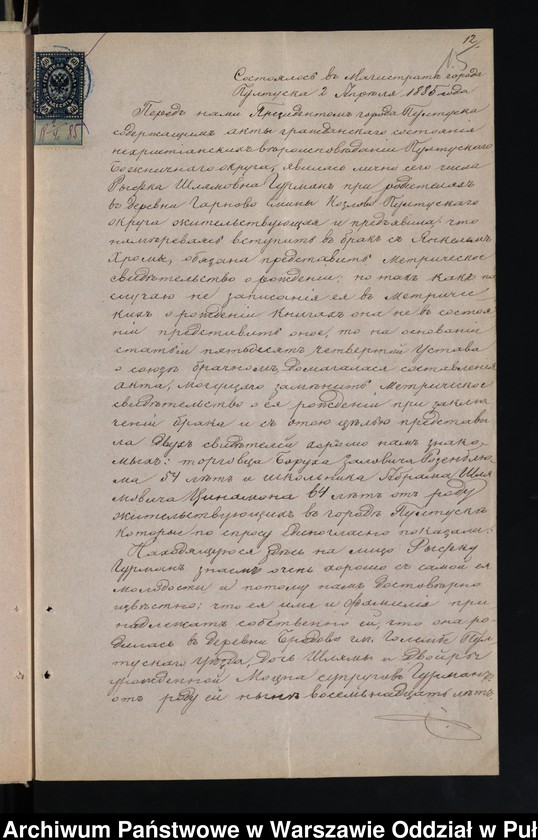 12
N. 5
Состоялось въ Магистратѣ города
Пултуска 2 Апрѣля 1885 года
Передъ нами Президентомъ города Пултуска
содержащимъ акты гражданскаго состоянія
нехристіанскихъ вѣроисповѣданій Пултускаго
Божничнаго округа, явилась лично сего числа
Рысрка Шлямовна Гурманъ при родителяхъ
въ деревни Гарново гмины Козлово Пултускаго
округа жительствующая и предъявила: что
намѣреваясь вступить въ бракъ съ Янкелемъ
Хромы, обязана представить Метрическое
свидѣтельство о рожденіи; но такъ какъ по
случаю не записанія ея въ Метричес-
кихъ о рожденіи книгахъ она не въ состоя
ніи представить оное, то на основаніи
статьи пятьдесятъ четвертой Устава
о союзѣ брачномъ, домагалася составленія
акта, могущаго замѣнить Метрическое
свидѣтельство о ея рожденіи при заклю
ченіи брака и съ этою цѣлью представи
ла двухъ свидѣтелей хорошо намъ знако-
мыхъ: торговца Боруха Залковича Розенблю
ма 54 лѣтъ и школьника Абрама Шля
мовича Цинамона 64 лѣтъ отъ роду
жительствующихъ въ городѣ Пултускѣ
которые по спросу единогласно показали:
Находящуюся здѣсь на лицо Рысрку
Гурманъ знаемъ очень хорошо съ самой ея
молодости и потому намъ достовѣрно
извѣстно; что ея имя и фамилія при
надлежатъ собственно ей, что она ро-
дилась въ деревни Брадово гм. Голембе Пул
тускаго уѣзда, дочь Шлямы и Двойры
урожденной Моцна супруговъ Гурманъ,
отъ роду ей нынѣ восемьнадцать лѣтъ.
Archiwum Państwowe w Warszawie Oddział w Puł